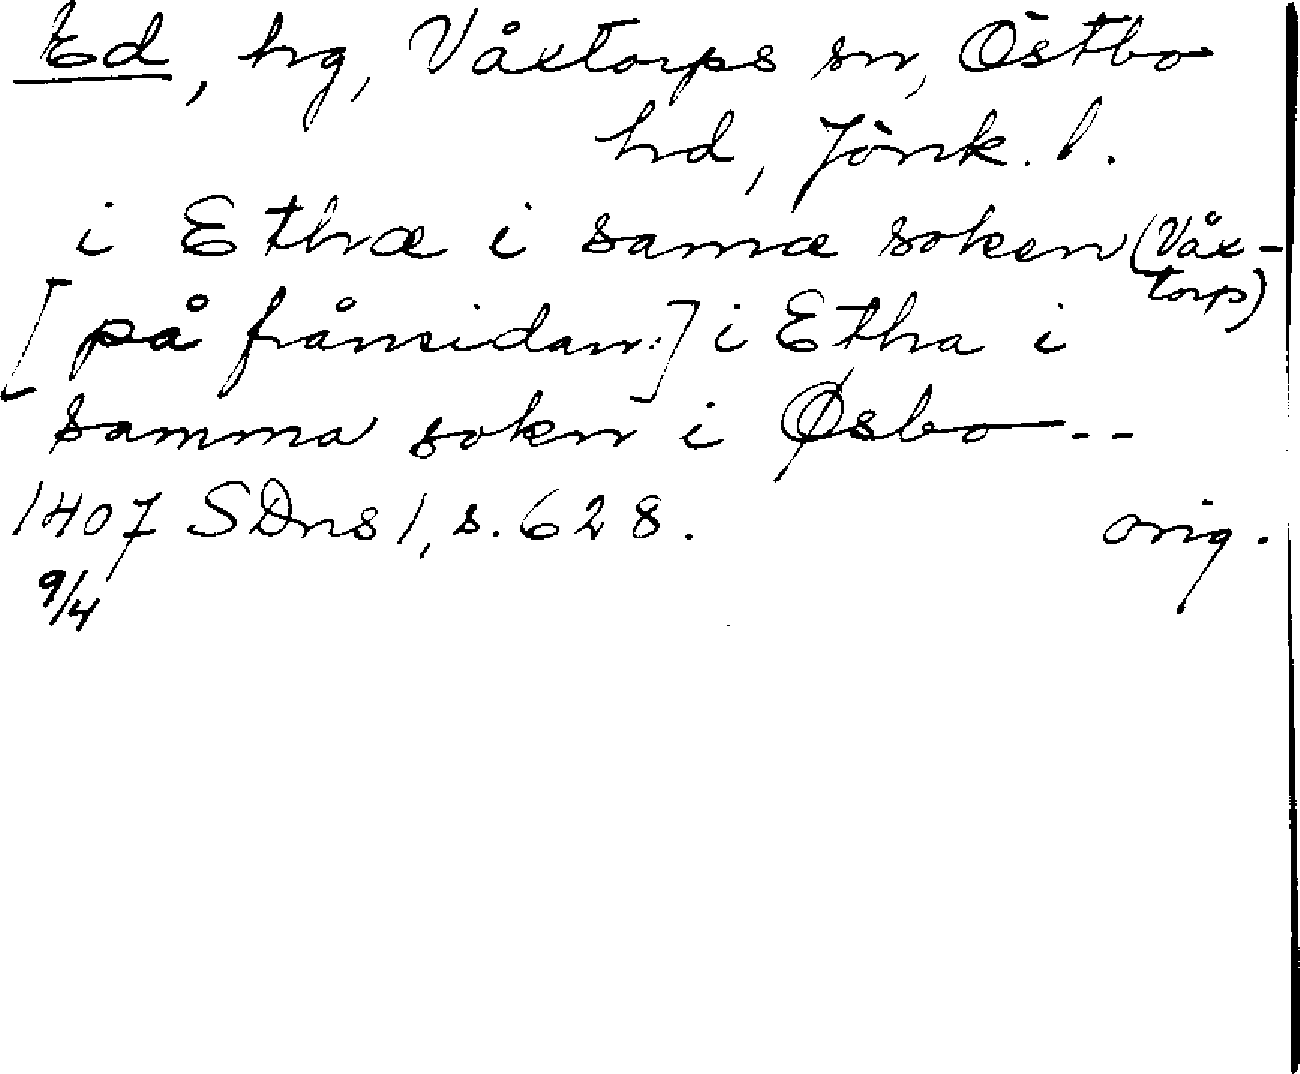 Ed, hg, Våxtorps sn, Östbo
hd, Jönk. l.
i Ethræ i samæ soken (Våx-
torp)
[på frånsidan:] i Etha i
samma sokn i Øsbo --
1407 SDns 1, s. 628. orig.
9/4